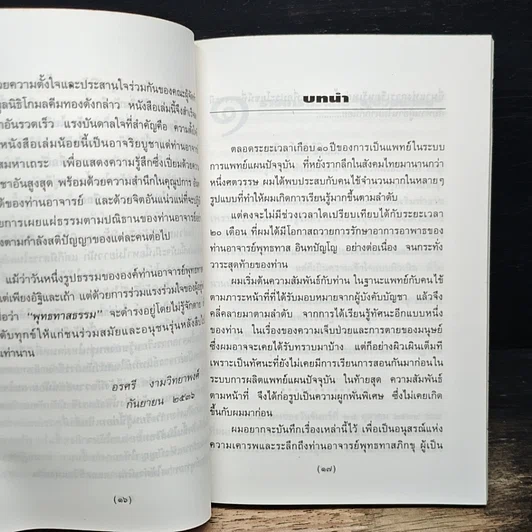 วยความตั้งใจและประสานใจร่วมกันของคณะผู้
ลนิธิโกมลคีมทองดังกล่าว หนังสือเล่มนี้จึงสำเร็จ
อันรวดเร็ว แรงบันดาลใจที่สำคัญคือ ความตั้งใจ
หนังสือเล่มน้อยนี้เป็นอาจริยบูชาแด่ท่านอาจารย์
มหาเถระ เพื่อแสดงความรู้สึกซึ่งเปี่ยมด้วยความ
ชาอันสูงสุด พร้อมด้วยความสำนึกในคุณูปการ อัน
ท่านอาจารย์ และด้วยจิตอันแน่วแน่ที่จะ
การเผยแผ่ธรรมตามปณิธานของท่านอาจารย์
งตามกำลังสติปัญญาของแต่ละคนต่อไป
แม้ว่าวันหนึ่งรูปธรรมขององค์ท่านอาจารย์พุทธทาส
แต่เพียงอัฐิและเถ้า แต่ด้วยการร่วมแรงร่วมใจของผู้
ถือว่า “พุทธทาสธรรม” จะดำรงอยู่โดยไม่รู้จักตาย
ดับทุกข์ให้แก่ชนร่วมสมัยและอนุชนรุ่นหลังสืบ
เท่านาน
อรศรี งามวิทยาพงศ์
กันยายน ๒๕๓๖
(๑๖)
บทนำ
ตลอดระยะเวลาเกือบ ๑๐ ปีของการเป็นแพทย์ในระบบ
การแพทย์แผนปัจจุบัน ที่หยั่งรากลึกในสังคมไทยมานานกว่า
หนึ่งศตวรรษ ผมได้พบประสบกับคนไข้จำนวนมากในหลายๆ
รูปแบบที่ทำให้ผมเกิดการเรียนรู้มากขึ้นตามลำดับ
แต่คงจะไม่มีช่วงเวลาใดเปรียบเทียบได้กับระยะเวลา
๒๐ เดือน ที่ผมได้มีโอกาสถวายการรักษาอาการอาพาธของ
ท่านอาจารย์พุทธทาส อินทปัญโญ อย่างต่อเนื่อง จนกระทั่ง
วาระสุดท้ายของท่าน
ผมเริ่มต้นความสัมพันธ์กับท่าน ในฐานะแพทย์กับคนไข้
ตามภาระหน้าที่ที่ได้รับมอบหมายจากผู้บังคับบัญชา แล้วจึง
คลี่คลายมาตามลำดับ จากการได้เรียนรู้ทัศนะอีกแบบหนึ่ง
ของท่าน ในเรื่องของความเจ็บป่วยและการตายของมนุษย์
ซึ่งผมอาจจะเคยได้รับทราบมาบ้าง แต่ก็อย่างผิวเผินเต็มที
เพราะเป็นทัศนะที่ยังไม่เคยมีการเรียนการสอนกันมาก่อนใน
ระบบการผลิตแพทย์แผนปัจจุบัน ในท้ายสุด ความสัมพันธ์
ตามหน้าที่ จึงได้ก่อรูปเป็นความผูกพันพิเศษ ซึ่งไม่เคยเกิด
ขึ้นกับผมมาก่อน
ผมอยากจะบันทึกเรื่องเหล่านี้ไว้ เพื่อเป็นอนุสรณ์แห่ง
ความเคารพและระลึกถึงท่านอาจารย์พุทธทาสภิกขุ ผู้เป็น
(๑๗)